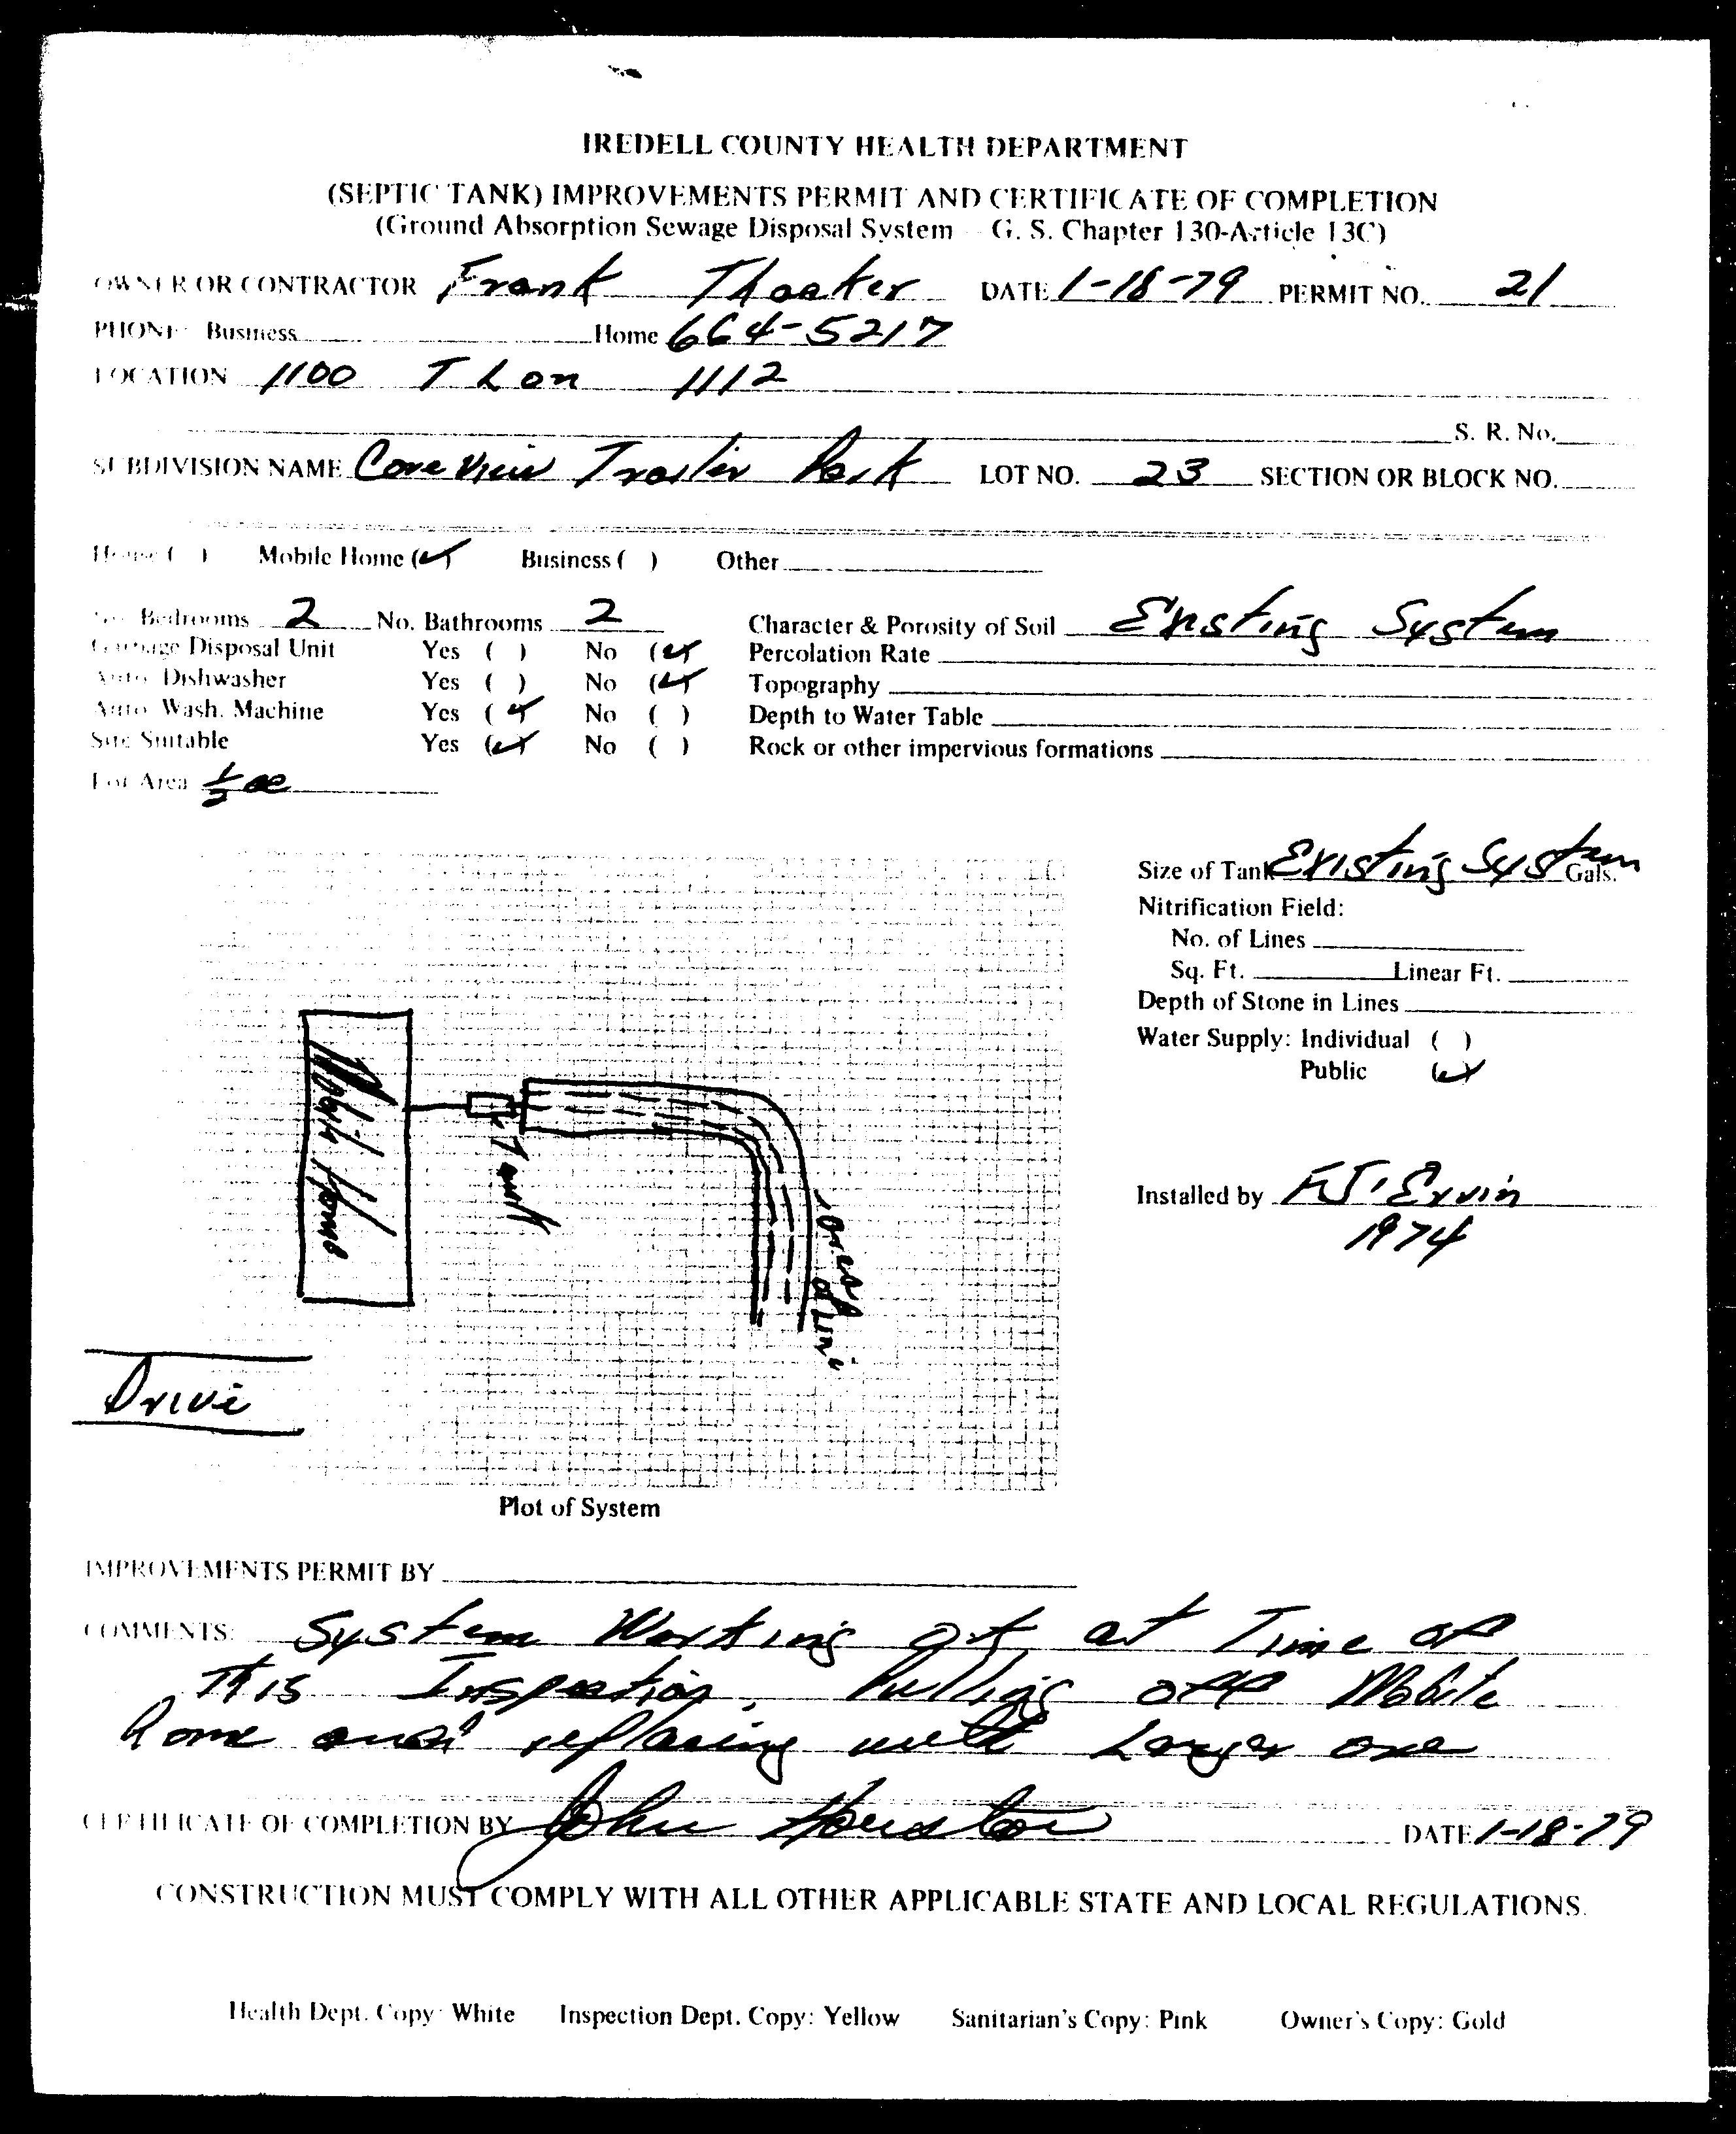 IREDELL COUNTY HEALTH DEPARTMENT
(SEPTIC TANK) IMPROVEMENTS PERMIT AND CERTIFICATE OF COMPLETION
(Ground Absorption Sewage Disposal System G. S. Chapter 130-Article 13C)
OWNER OR CONTRACTOR Frank Thacker DATE 1-18-79 PERMIT NO. 21
PHONE: Business Home 664-5217
LOCATION 1100 T L on 1112
S. R. No.
SUBDIVISION NAME Cove View Trailer Park LOT NO. 23 SECTION OR BLOCK NO.
House ( ) Mobile Home (✓) Business ( ) Other
No. Bedrooms 2 No. Bathrooms 2 Character & Porosity of Soil Existing System
Garbage Disposal Unit Yes ( ) No (✓) Percolation Rate
Auto. Dishwasher Yes ( ) No (✓) Topography
Auto. Wash. Machine Yes (✓) No ( ) Depth to Water Table
Site Suitable Yes (✓) No ( ) Rock or other impervious formations
Lot Area 1/2 ac
Size of Tank Existing System Gals.
Nitrification Field:
No. of Lines
Sq. Ft. Linear Ft.
Depth of Stone in Lines
Water Supply: Individual ( )
Public (✓)
Mobile Home
Tank
of Line
Installed by F.J. Ervin
1974
Drive
Plot of System
IMPROVEMENTS PERMIT BY
COMMENTS: System Working at Time of
This Inspection. Pulling off Mobile
home and replacing with Larger one
CERTIFICATE OF COMPLETION BY John Houston DATE 1-18-79
CONSTRUCTION MUST COMPLY WITH ALL OTHER APPLICABLE STATE AND LOCAL REGULATIONS.
Health Dept. Copy: White Inspection Dept. Copy: Yellow Sanitarian's Copy: Pink Owner's Copy: Gold